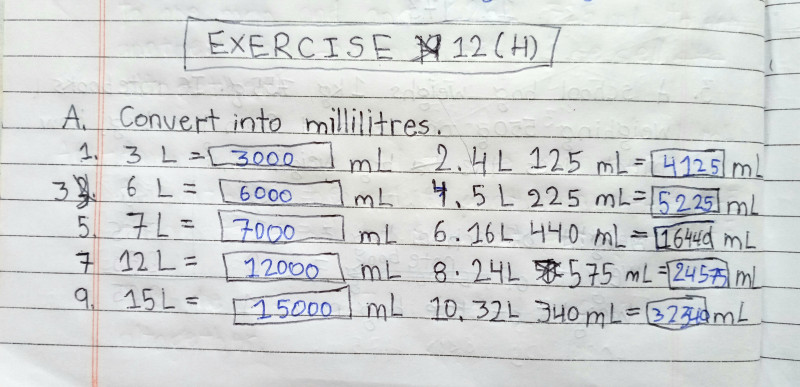 EXERCISE 12(H)
A. Convert into millilitres.
1. 3 L = 3000 mL 2. 4 L 125 mL = 4125 mL
3. 6 L = 6000 mL 4. 5 L 225 mL = 5225 mL
5. 7 L = 7000 mL 6. 16 L 440 mL = 16440 mL
7 12 L = 12000 mL 8. 24 L 575 mL = 24575 mL
9. 15 L = 15000 mL 10. 32 L 340 mL = 32340 mL